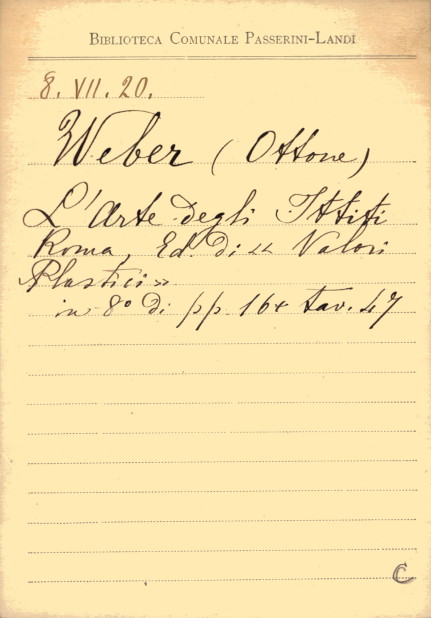 BIBLIOTECA COMUNALE PASSERINI-LANDI
8. VII. 20.
Weber (Ottone)
L'Arte degli Ittiti
Roma, Ed. di « Valori
Plastici »
in 8° di pp. 16 + tav. 47
C